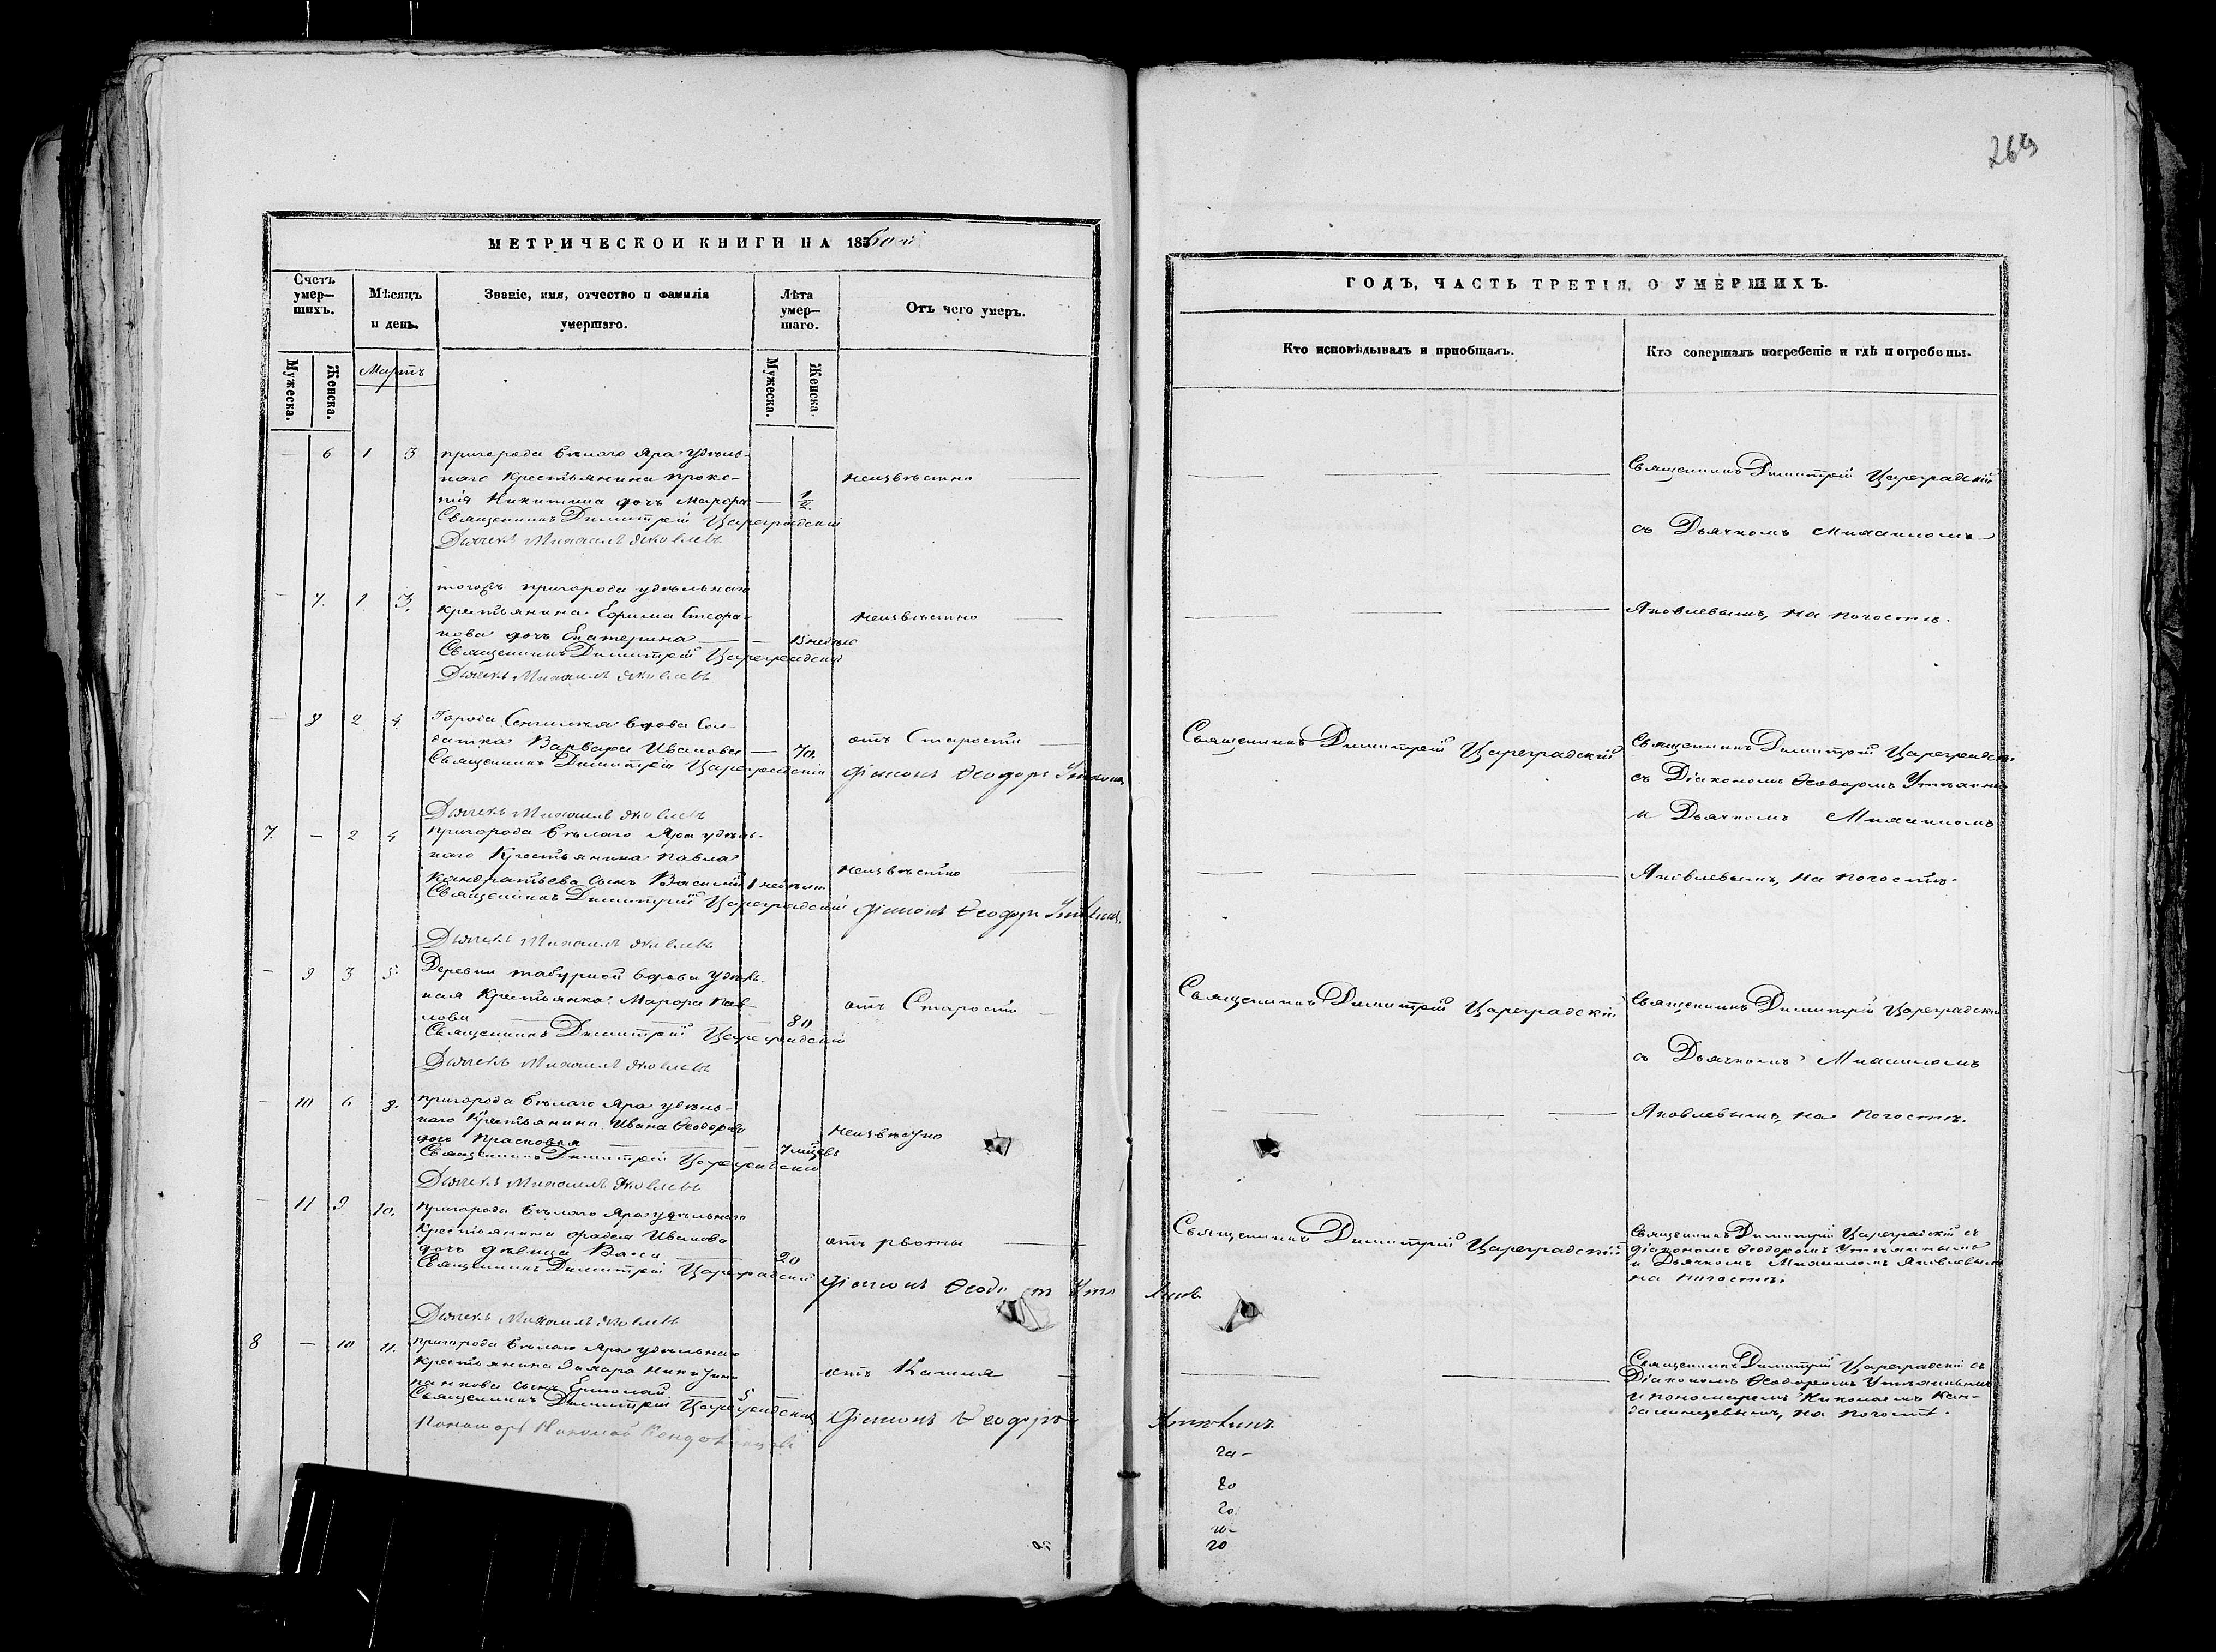 269
МЕТРИЧЕСКОЙ КНИГИ НА 18
Счетъ умер— шихъ.
Мѣсяцъ и день.
Званіе, имя, отчество и фамилія умершаго.
Лѣта умер— шаго.
Отъ чего умеръ.
Мужеска.
Женска.
Мартъ
Мужеска.
Женска.
— 6 1 3 пригорода Бѣлаго Яра удѣль-
наго Крестьянина Проко-
пія Никитина дочь Марфа — 1/2 неизвѣстно
Священникъ Димитрій Цареградскій
Дьячекъ Михаилъ Яковлевъ
— 7. 1 3. тогожъ пригорода удѣльнаго
крестьянина Ефима Стефа-
нова дочь Екатерина — 15 недѣль неизвѣстно
Священникъ Димитрій Цареградскій
Дьячекъ Михаилъ Яковлевъ
— 8 2 4 Города Сенгилея вдова Сол-
датка Варвара Иванова — 70. отъ Старости
Священникъ Димитрій Цареградскій Діаконъ Ѳеодоръ
Дьячекъ Михаилъ Яковлевъ
7. — 2 4 пригорода Бѣлаго Яра удѣль-
наго Крестьянина Павла
Кондратьева сынъ Василій 1 неизвѣстно
Священникъ Димитрій Цареградскій Діаконъ Ѳеодоръ
Дьячекъ Михаилъ Яковлевъ
— 9 3 5. Деревни вдова удѣль-
ная Крестьянка Марфа Пав-
лова 80 отъ Старости
Священникъ Димитрій Цареградскій
Дьячекъ Михаилъ Яковлевъ
— 10 6 8. пригорода Бѣлаго Яра удѣль-
наго Крестьянина Ивана Ѳеодорова
дочь Прасковья 7 мѣсцевъ неизвѣстно
Священникъ Димитрій Цареградскій
Дьячекъ Михаилъ Яковлевъ
— 11 9 10. пригорода Бѣлаго Яра удѣльнаго
Крестьянина Фадея Иванова
дочь дѣвица 20 отъ рвоты
Священникъ Димитрій Цареградскій Діаконъ
Дьячекъ Михаилъ Яковлевъ
8 — 10 11. пригорода Бѣлаго Яра удѣльнаго
Крестьянина Захара
сынъ Ермолай 5 отъ Кашля
Священникъ Димитрій Цареградскій Діаконъ Ѳеодоръ
Пономарь Николай
ГОДЪ, ЧАСТЬ ТРЕТІЯ, О УМЕРШИХЪ.
Кто исповѣдывалъ и пріобщалъ.
Кто совершалъ погребеніе и гдѣ погребены.
Священникъ Димитрій Цареградскій
съ Дьячкомъ Михаиломъ
Яковлевымъ, на погостѣ.
Священникъ Димитрій Цареградскій
Священникъ Димитрій
съ Діакономъ Ѳеодоромъ
и Дьячкомъ Михаиломъ
Яковлевымъ, на погостѣ.
Священникъ Димитрій Цареградскій
Священникъ Димитрій Цареградскій
съ Дьячкомъ Михаиломъ
Яковлевымъ, на погостѣ.
Священникъ Димитрій Цареградскій
Священникъ Димитрій Цареградскій съ
діакономъ Ѳеодоромъ
и Дьячкомъ Михаиломъ Яковлевымъ
на погостѣ.
Священникъ Димитрій Цареградскій съ
Діакономъ Ѳеодоромъ
и пономаремъ Николаемъ
на погостѣ.